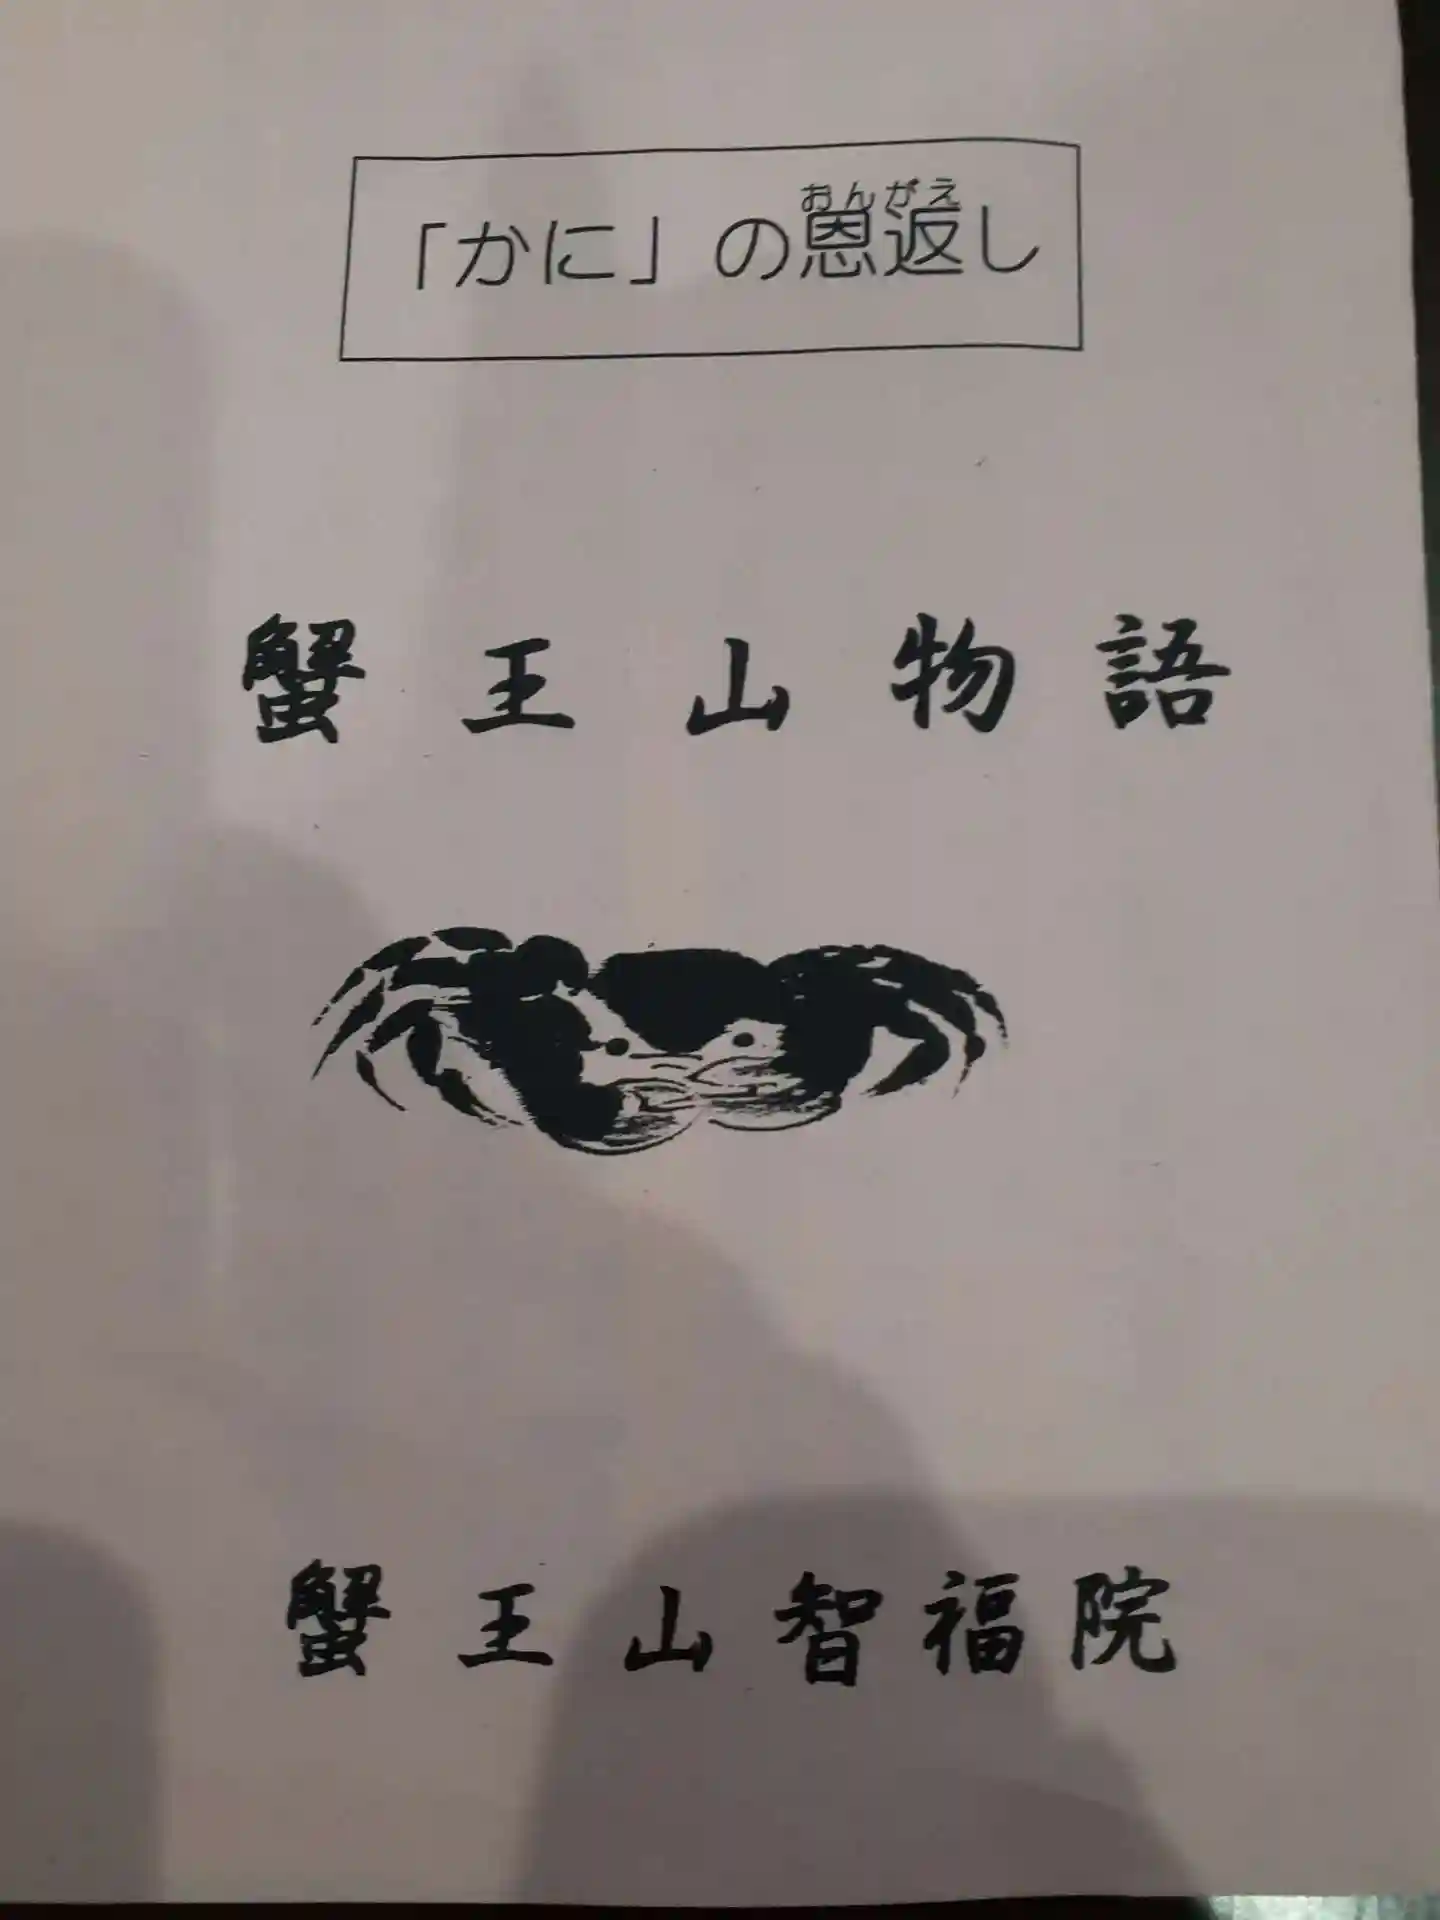 「かに」の恩返し
おんがえ
蟹王山物語
蟹王山智福院